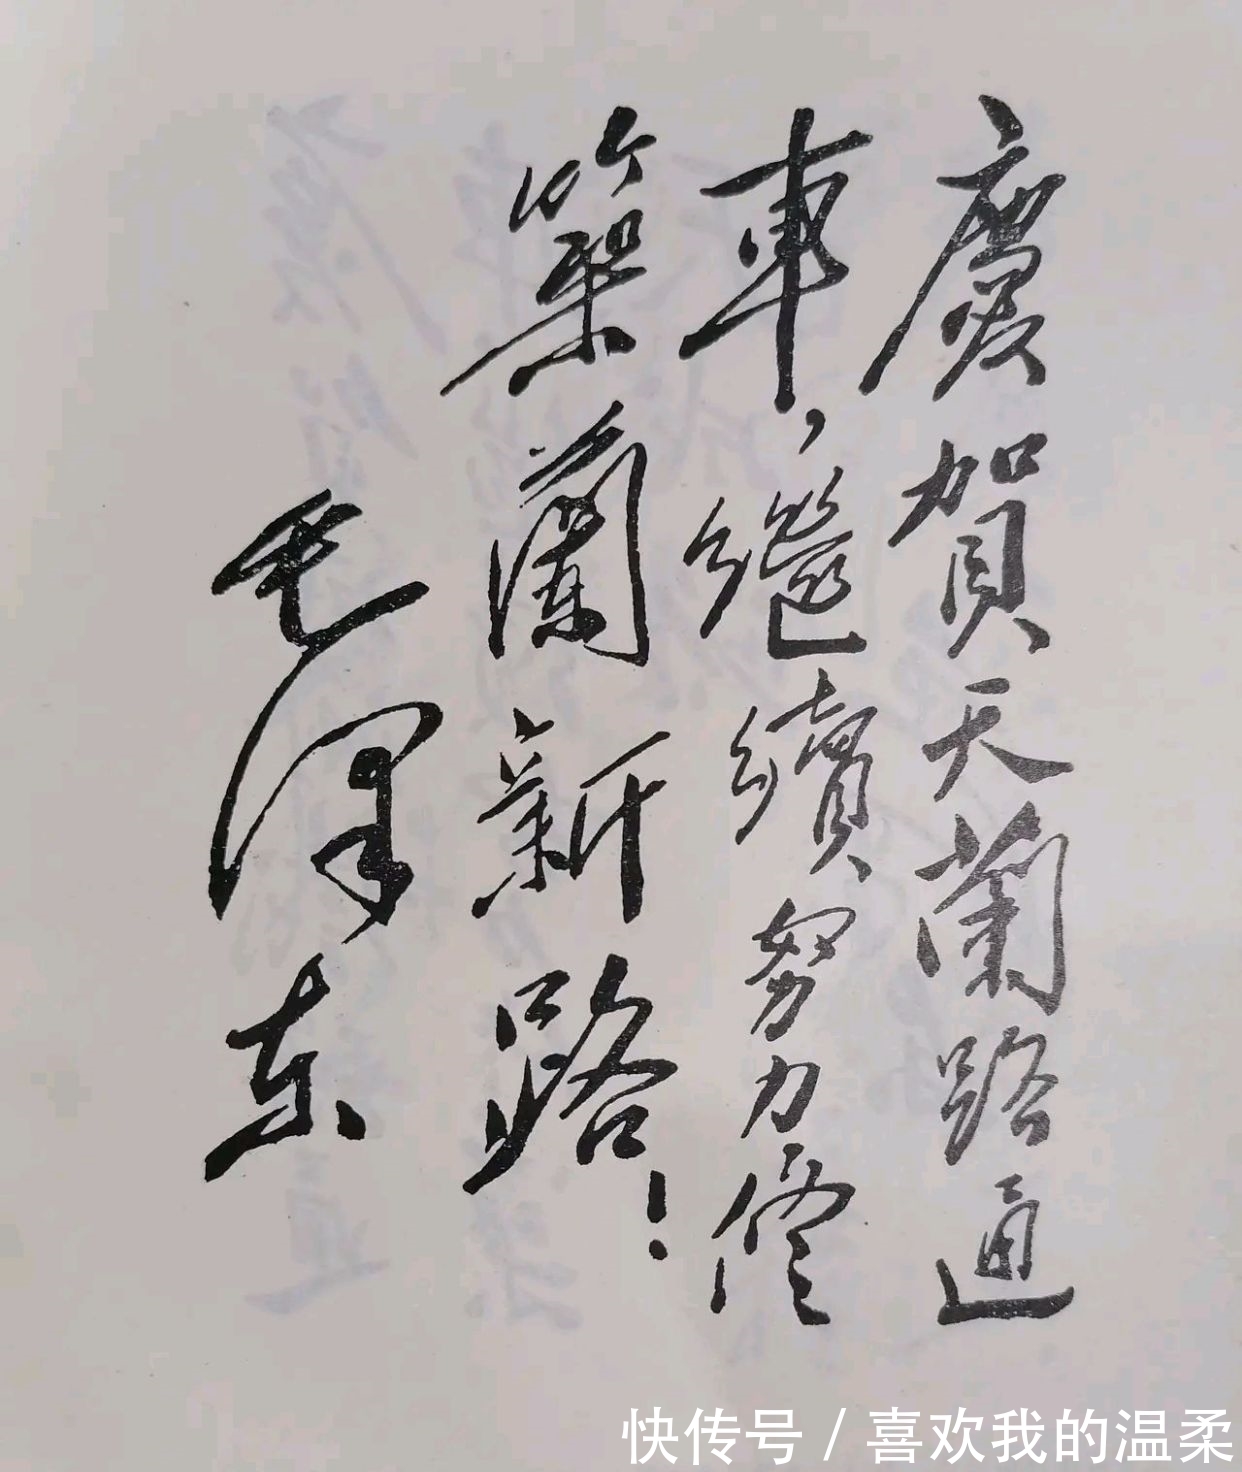 慶賀天蘭路通
車，繼續努力修
築蘭新路！
毛澤东
快传号 / 喜欢我的温柔